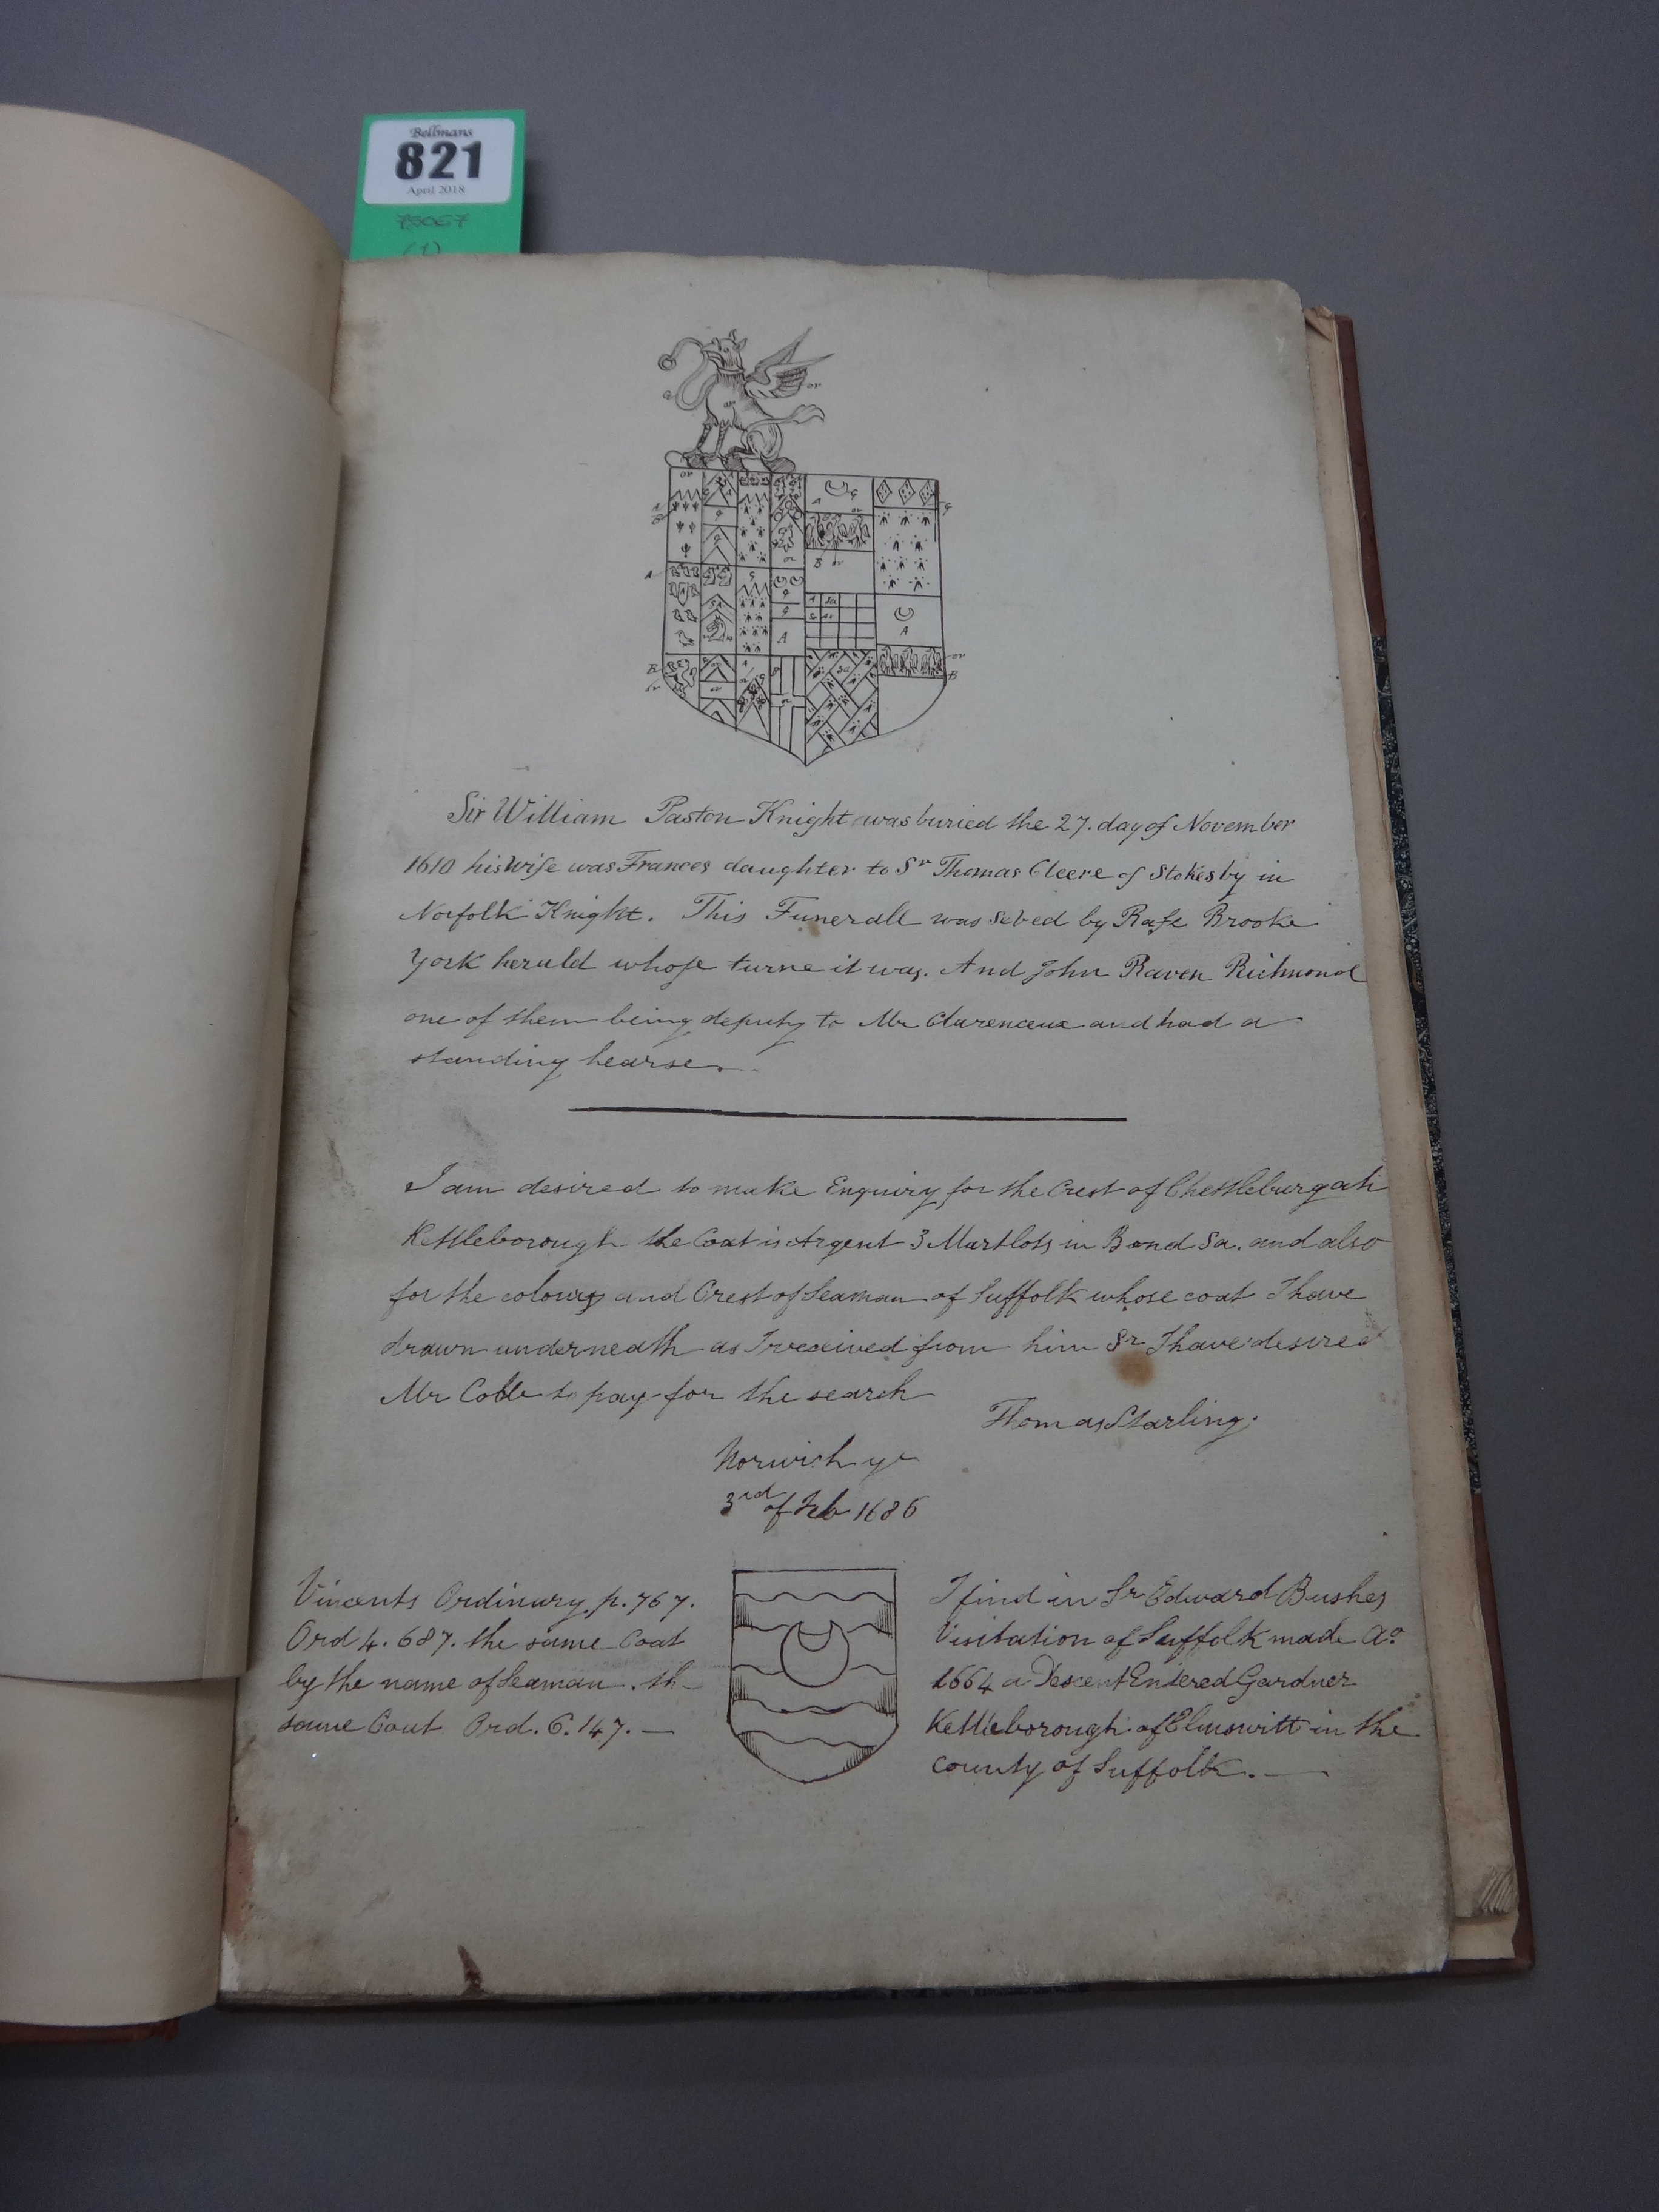 Bellmans
821
April 2018
(1)
Sir William Paston Knight was buried the 27. day of November
1610 his Wife was Frances daughter to Sr Thomas Cleere of Stokesby in
Norfolk Knight. This Funerall was seved by Rafe Brooke
York herald whose turne it was. And John Raven Richmond
one of them being deputy to Mr Clarenceux and had a
standing hearse.
I am desired to make Enquiry for the Crest of
Kettleborough the Coat is Argent 3 Martlots in Bend Sa. and also
for the colours and Crest of Seaman of Suffolk whose coat I have
drawn underneath as I received from him Sr I have desired
Mr to pay for the search
Thomas Starling.
Norwich ye
3rd of Feb 1686
Vincents Ordinary p. 767.
Ord 4. 687. the same Coat
by the name of Seaman. th
same Coat Ord. 6. 147. —
I find in Sr Edward Bushes
Visitation of Suffolk made Ao
1664 a Descent Entered Gardner
Kettleborough of Elmswitt in the
county of Suffolk. —